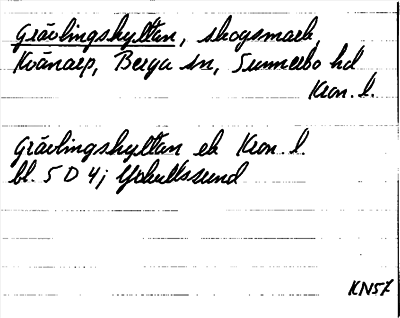 Grävlingshyltan, skogsmark
Kvänarp, Berga sn, Sunnerbo hd
Kron. l.
Grävlingshyltan ek Kron. l.
bl. 5 D 4j
KN57